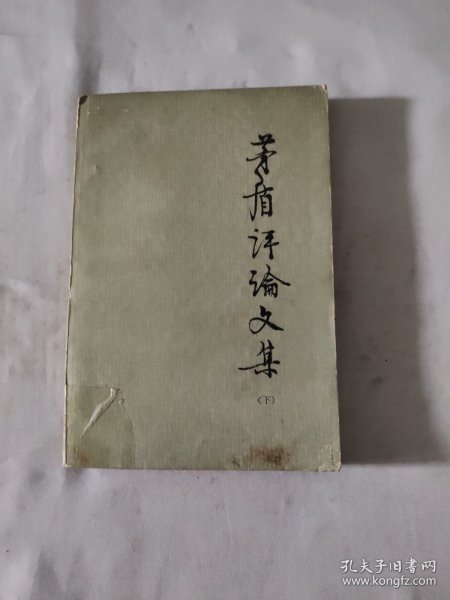 茅盾评论文集
(下)
孔夫子旧书网
www.kongfz.com